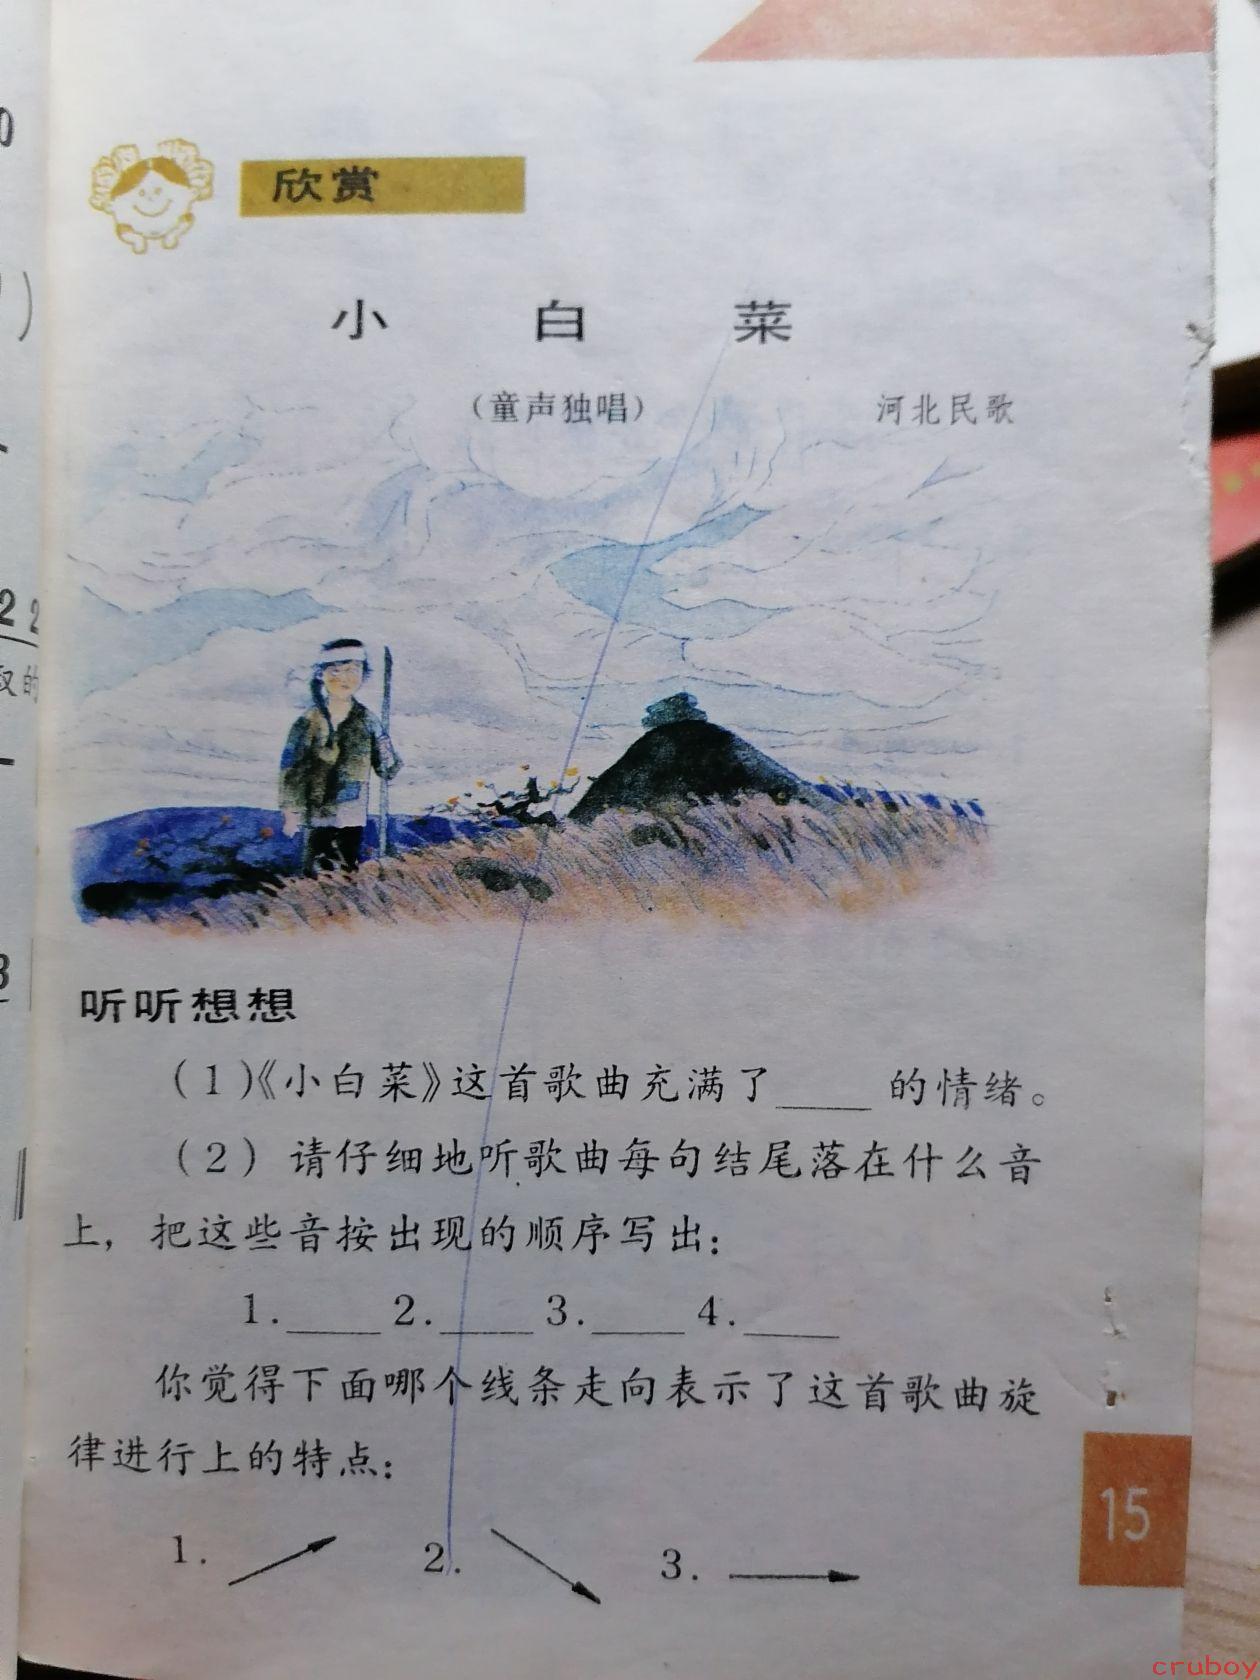 欣赏
小白菜
（童声独唱） 河北民歌
听听想想
（1）《小白菜》这首歌曲充满了____的情绪。
（2）请仔细地听歌曲每句结尾落在什么音
上，把这些音按出现的顺序写出：
1.____ 2.____ 3.____ 4.____
你觉得下面哪个线条走向表示了这首歌曲旋
律进行上的特点：
1. 2. 3.
15
cruboy